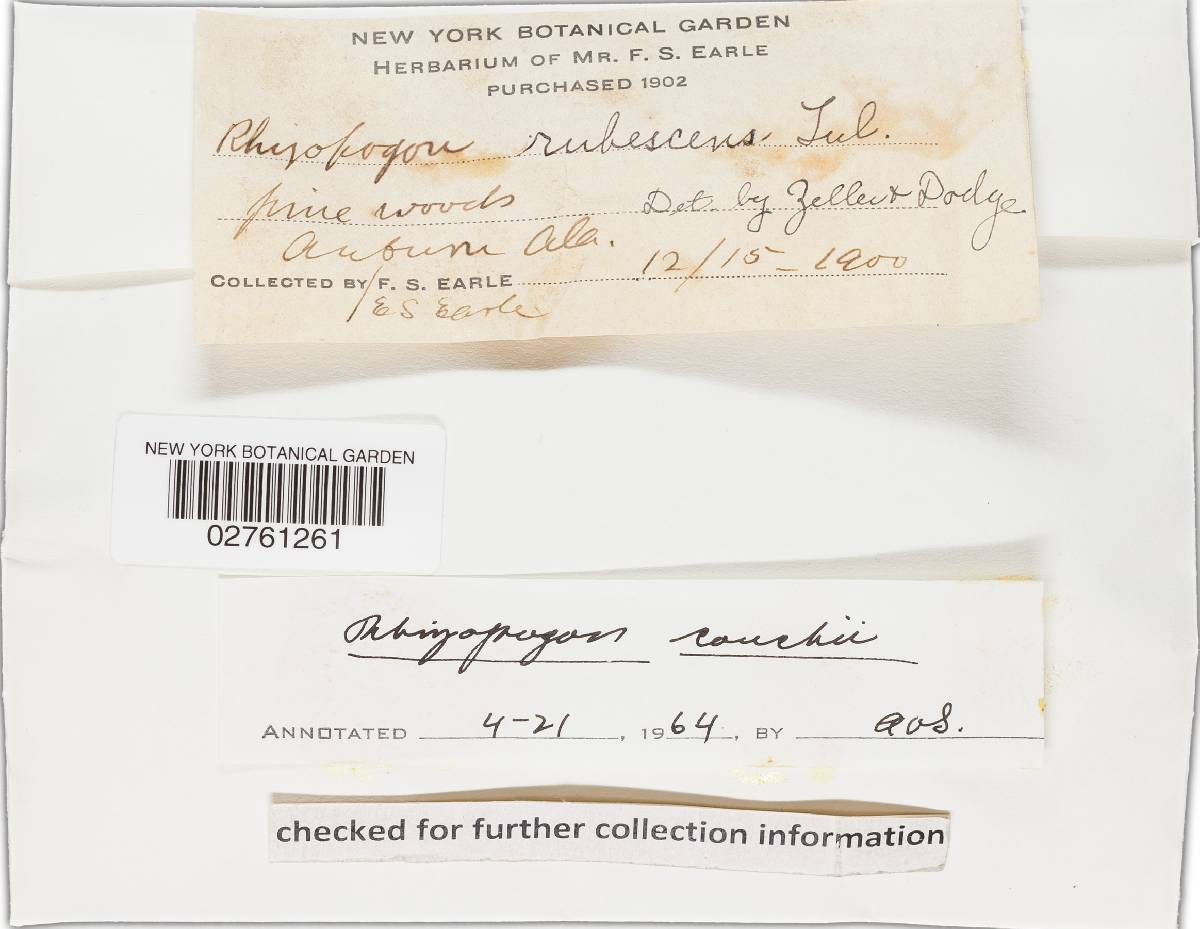 NEW YORK BOTANICAL GARDEN
HERBARIUM OF MR. F. S. EARLE
PURCHASED 1902
Rhizopogon rubescens Tul.
pine woods Det. by Zeller & Dodge
Auburn Ala.
COLLECTED BY F. S. EARLE 12/15-1900
/ E S Earle
NEW YORK BOTANICAL GARDEN
02761261
Rhizopogon couchii
ANNOTATED 4-21, 1964, BY aos.
checked for further collection information